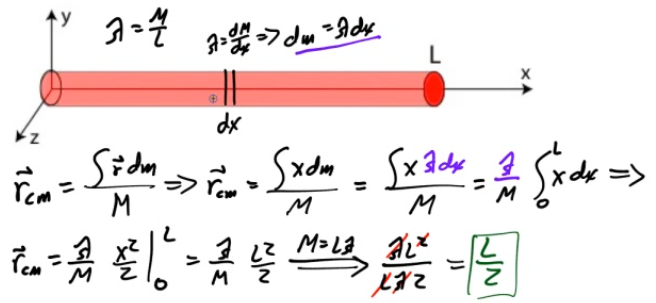 y
λ = M/L λ = dM/dx => dm = λdx
L
x
z
dx
r⃗cm = ∫r⃗dm/M => r⃗cm = ∫xdm/M = ∫xλdx/M = λ/M ∫₀ᴸ xdx =>
r⃗cm = λ/M x²/2 |₀ᴸ = λ/M L²/2 M=Lλ → λL²/Lλ2 = L/2